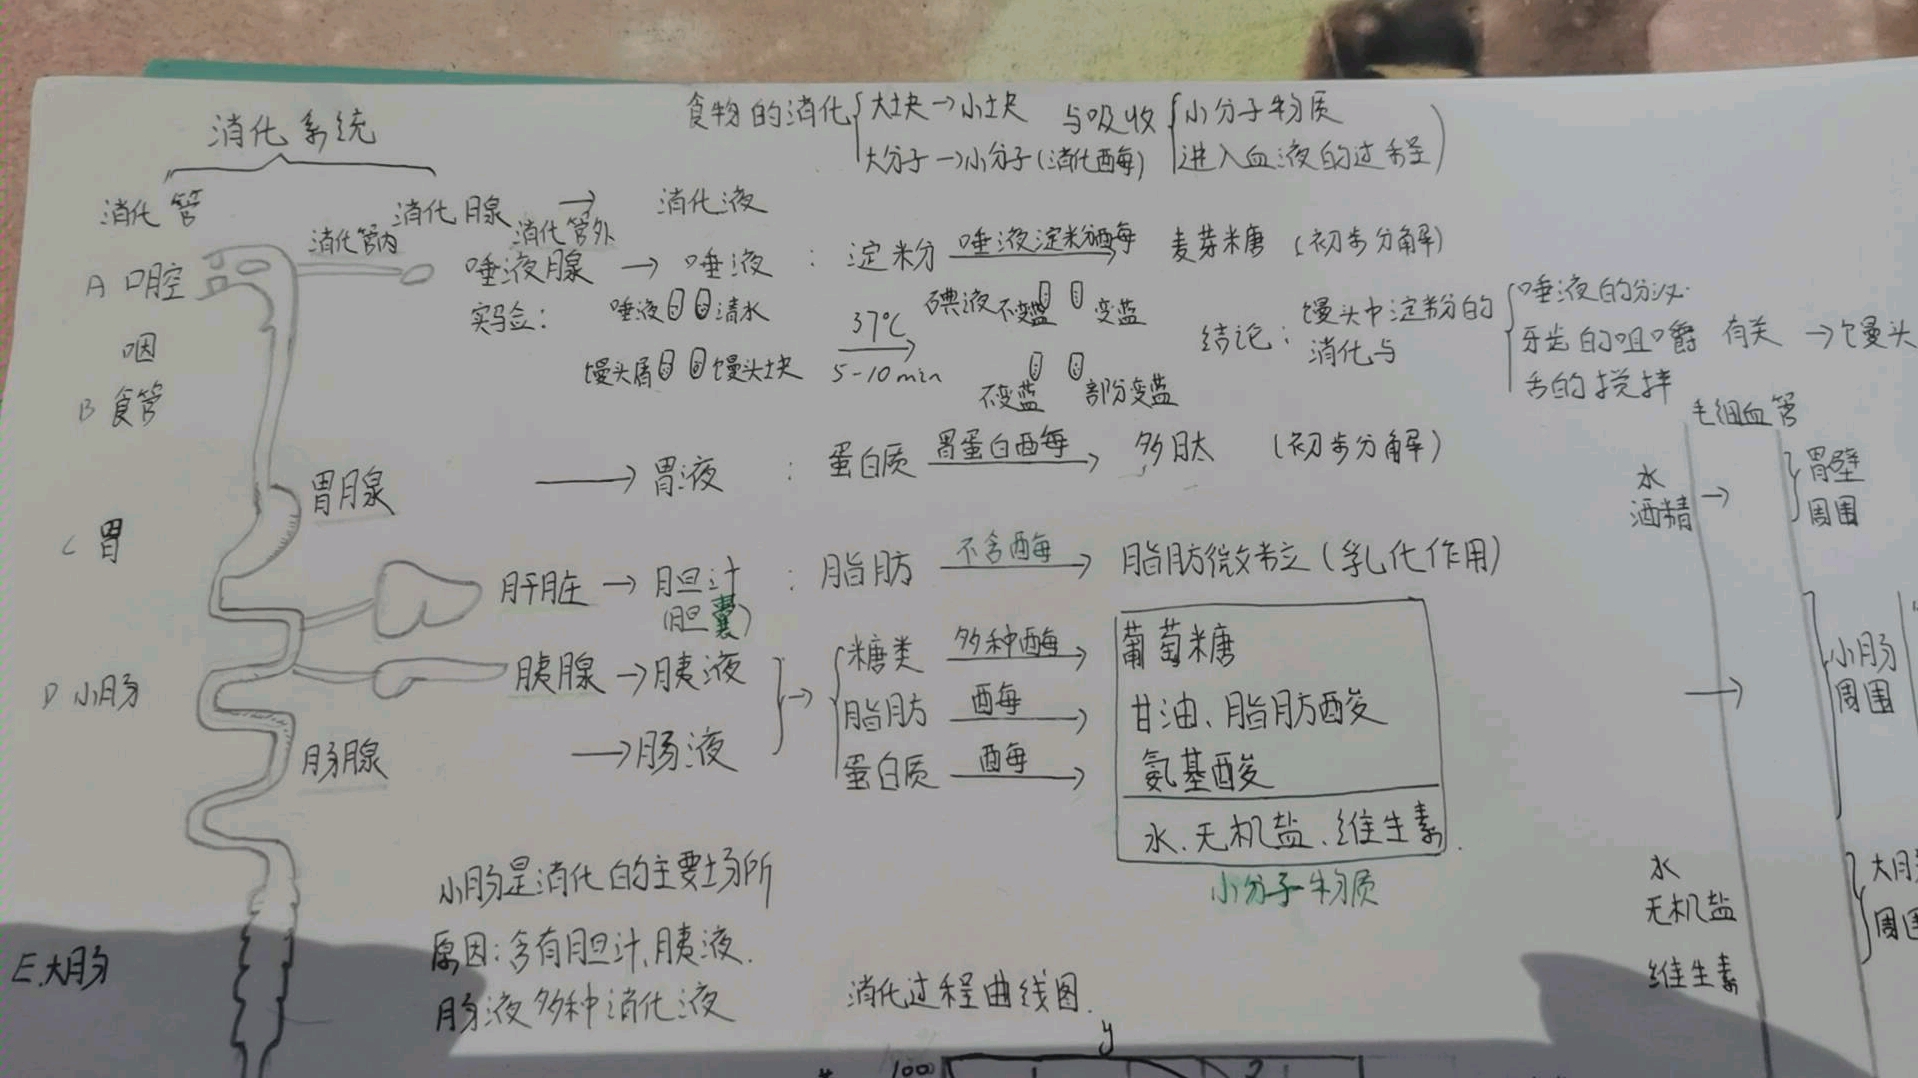 食物的消化 大块→小块 与吸收 小分子物质
大分子→小分子(消化酶) 进入血液的过程)
消化系统
消化管 消化腺 → 消化液
消化管内 消化管外
A 口腔 唾液腺 → 唾液 : 淀粉 唾液淀粉酶 麦芽糖 (初步分解)
实验: 唾液 清水 37℃ 碘液 不变蓝 变蓝
馒头屑 馒头块 5-10min 不变蓝 部份变蓝
结论: 馒头中淀粉的消化与 唾液的分泌 牙齿的咀嚼 舌的搅拌 有关 → 馒头
咽
B 食管
毛细血管
胃腺 → 胃液 : 蛋白质 胃蛋白酶 多肽 (初步分解)
水 酒精 → 胃壁周围
C 胃
肝脏 → 胆汁 : 脂肪 不含酶 脂肪微粒 (乳化作用)
(胆囊)
胰腺 → 胰液 → 糖类 多种酶 葡萄糖
D 小肠 脂肪 酶 甘油、脂肪酸
肠腺 → 肠液 蛋白质 酶 氨基酸
→ 小肠周围
水、无机盐、维生素
小分子物质
小肠是消化的主要场所
原因:含有胆汁、胰液、
肠液多种消化液
水
无机盐
维生素
大肠
周围
E.大肠
消化过程曲线图.
y
100
2